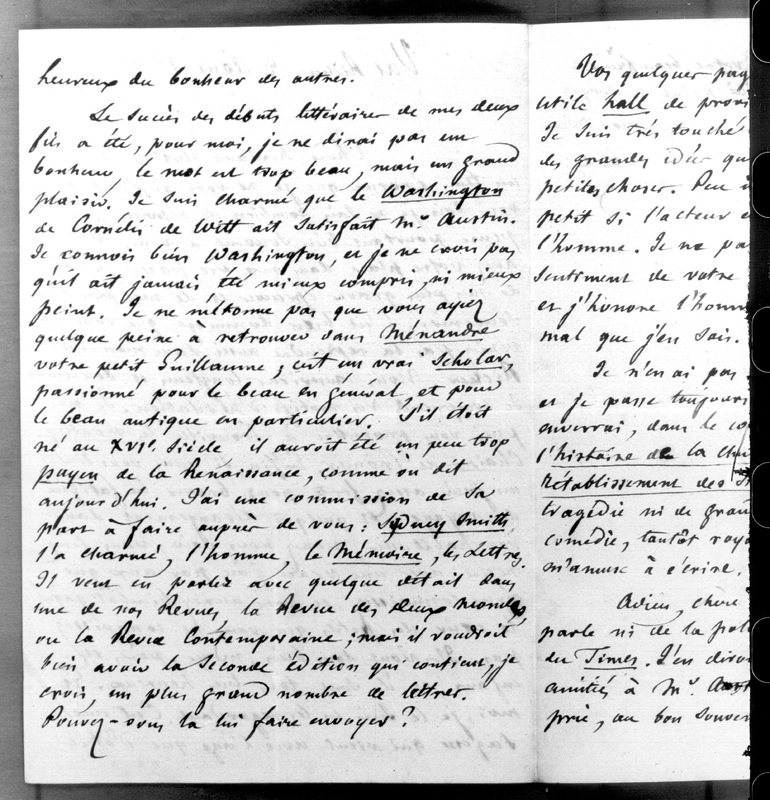 heureux du bonheur des autres.
Le succès des débuts littéraires de mes deux
fils a été, pour moi, je ne dirai pas un
bonheur, le mot est trop beau, mais un grand
plaisir. Je suis charmé que le Washington
de Cornélis de Witt ait satisfait Mr. Austin.
Je connois bien Washington, et je ne crois pas
qu'il ait jamais été mieux compris, ni mieux
peint. Je ne m'étonne pas que vous ayiez
quelque peine à retrouver dans Ménandre
votre petit Guillaume; c'est un vrai Scholar,
passionné pour le beau en général, et pour
le beau antique en particulier. S'il étoit
né au XVIe. Siècle il auroit été un peu trop
payen de la Renaissance, comme on dit
aujourd'hui. J'ai une commission de sa
part à faire auprès de vous: Sydney Smith
l'a charmé, l'homme, le Mémoire, les Lettres.
Il veut en parler avec quelque détail dans
une de nos Revues, la Revue des deux mondes
ou la Revue Contemporaine; mais il voudroit
bien avoir la seconde édition qui contient, je
crois, un plus grand nombre de lettres.
Pouvez-vous la lui faire envoyer?
Vos quelques pag
utile hall de provi
Je suis très touché
des grandes idées qu
petites choses. Peu
petit si l'acteur e
l'homme. Je ne pa
sentiment de votre
et j'honore l'homm
mal que j'en sais.
Je n'en ai pas
et je passe toujours
enverrai, dans le co
l'histoire de la chu
Rétablissement des S
tragédie ni de gran
comédie, tantôt roya
m'amuse à écrire.
Adieu, chère
parle ni de la pol
du Times. J'en dirai
amitiés à Mr. Aust
prie, au bon souven